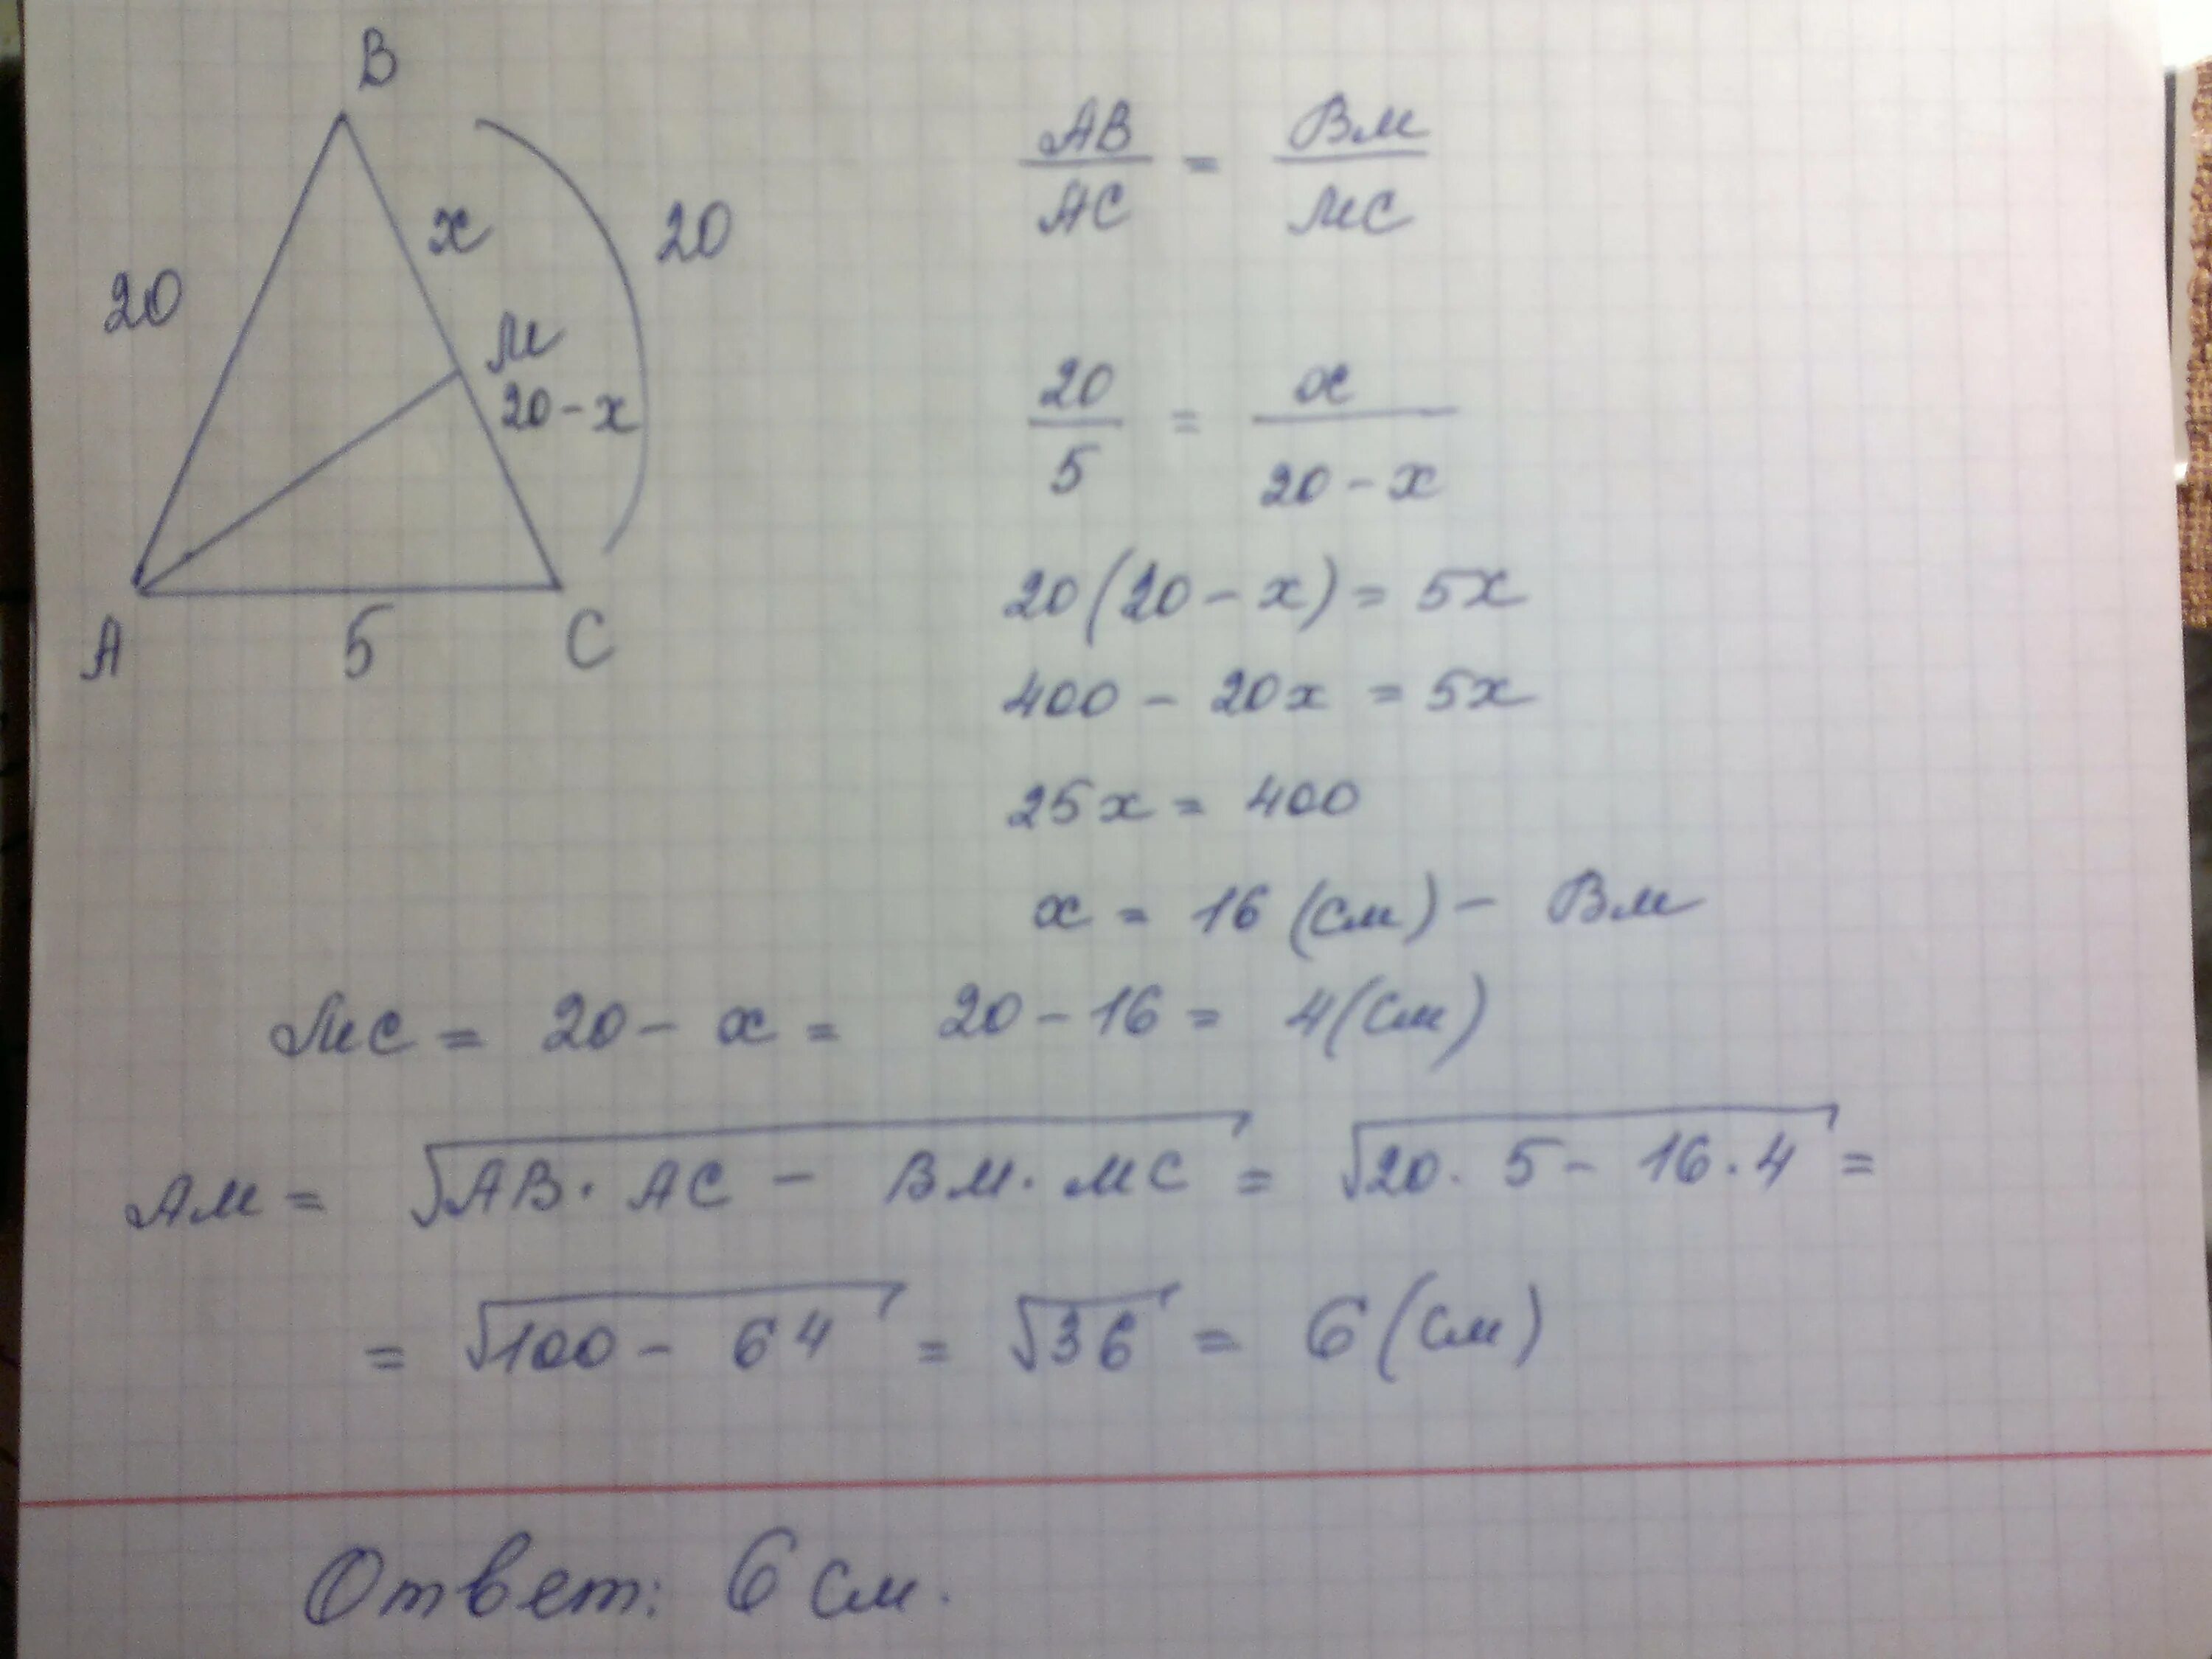 B
20
x
20
M
20 - x
A
5
C
AB/AC = BM/MC
20/5 = x/(20 - x)
20(20 - x) = 5x
400 - 20x = 5x
25x = 400
x = 16 (см) - BM
MC = 20 - x = 20 - 16 = 4 (см)
AM = √(AB · AC - BM · MC) = √(20 · 5 - 16 · 4) =
= √(100 - 64) = √36 = 6 (см)
Ответ: 6 см.